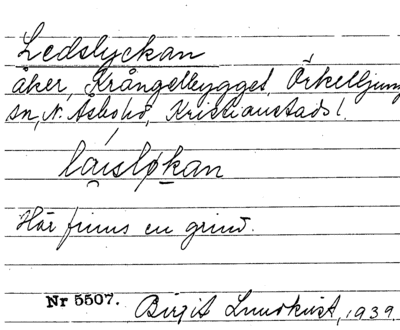 Ledslyckan
åker, Krångelbygget, Örkelljung
sn, N. Åsbohd, Kristianstads l.
Här finns en grind.
Nr 5507. Birgit Lundkvist, 1939